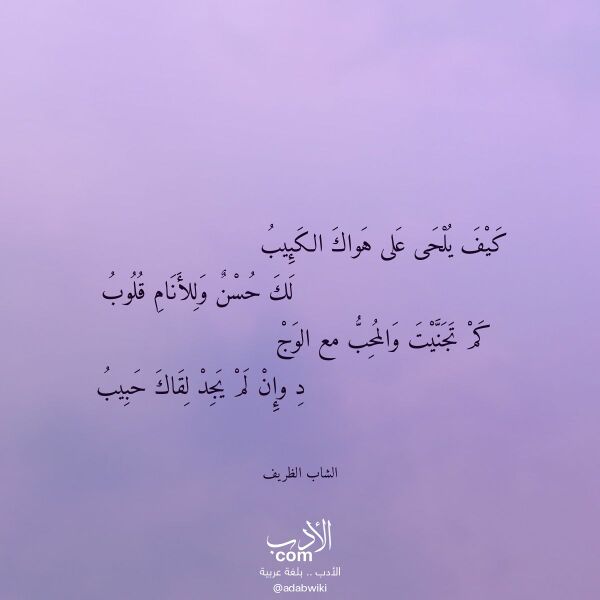 كَيْفَ يُلْحَى عَلى هَواكَ الكَئِيبُ
لَكَ حُسْنٌ وَلِلأَنَامِ قُلُوبُ
كَمْ تَجَنَّيْتَ وَالمُحِبُّ مع الوَجْ
دِ وإِنْ لَمْ يَجِدْ لِقَاكَ حَبِيبُ
الشاب الظريف
الأدب
com
الأدب .. بلغة عربية
@adabwiki